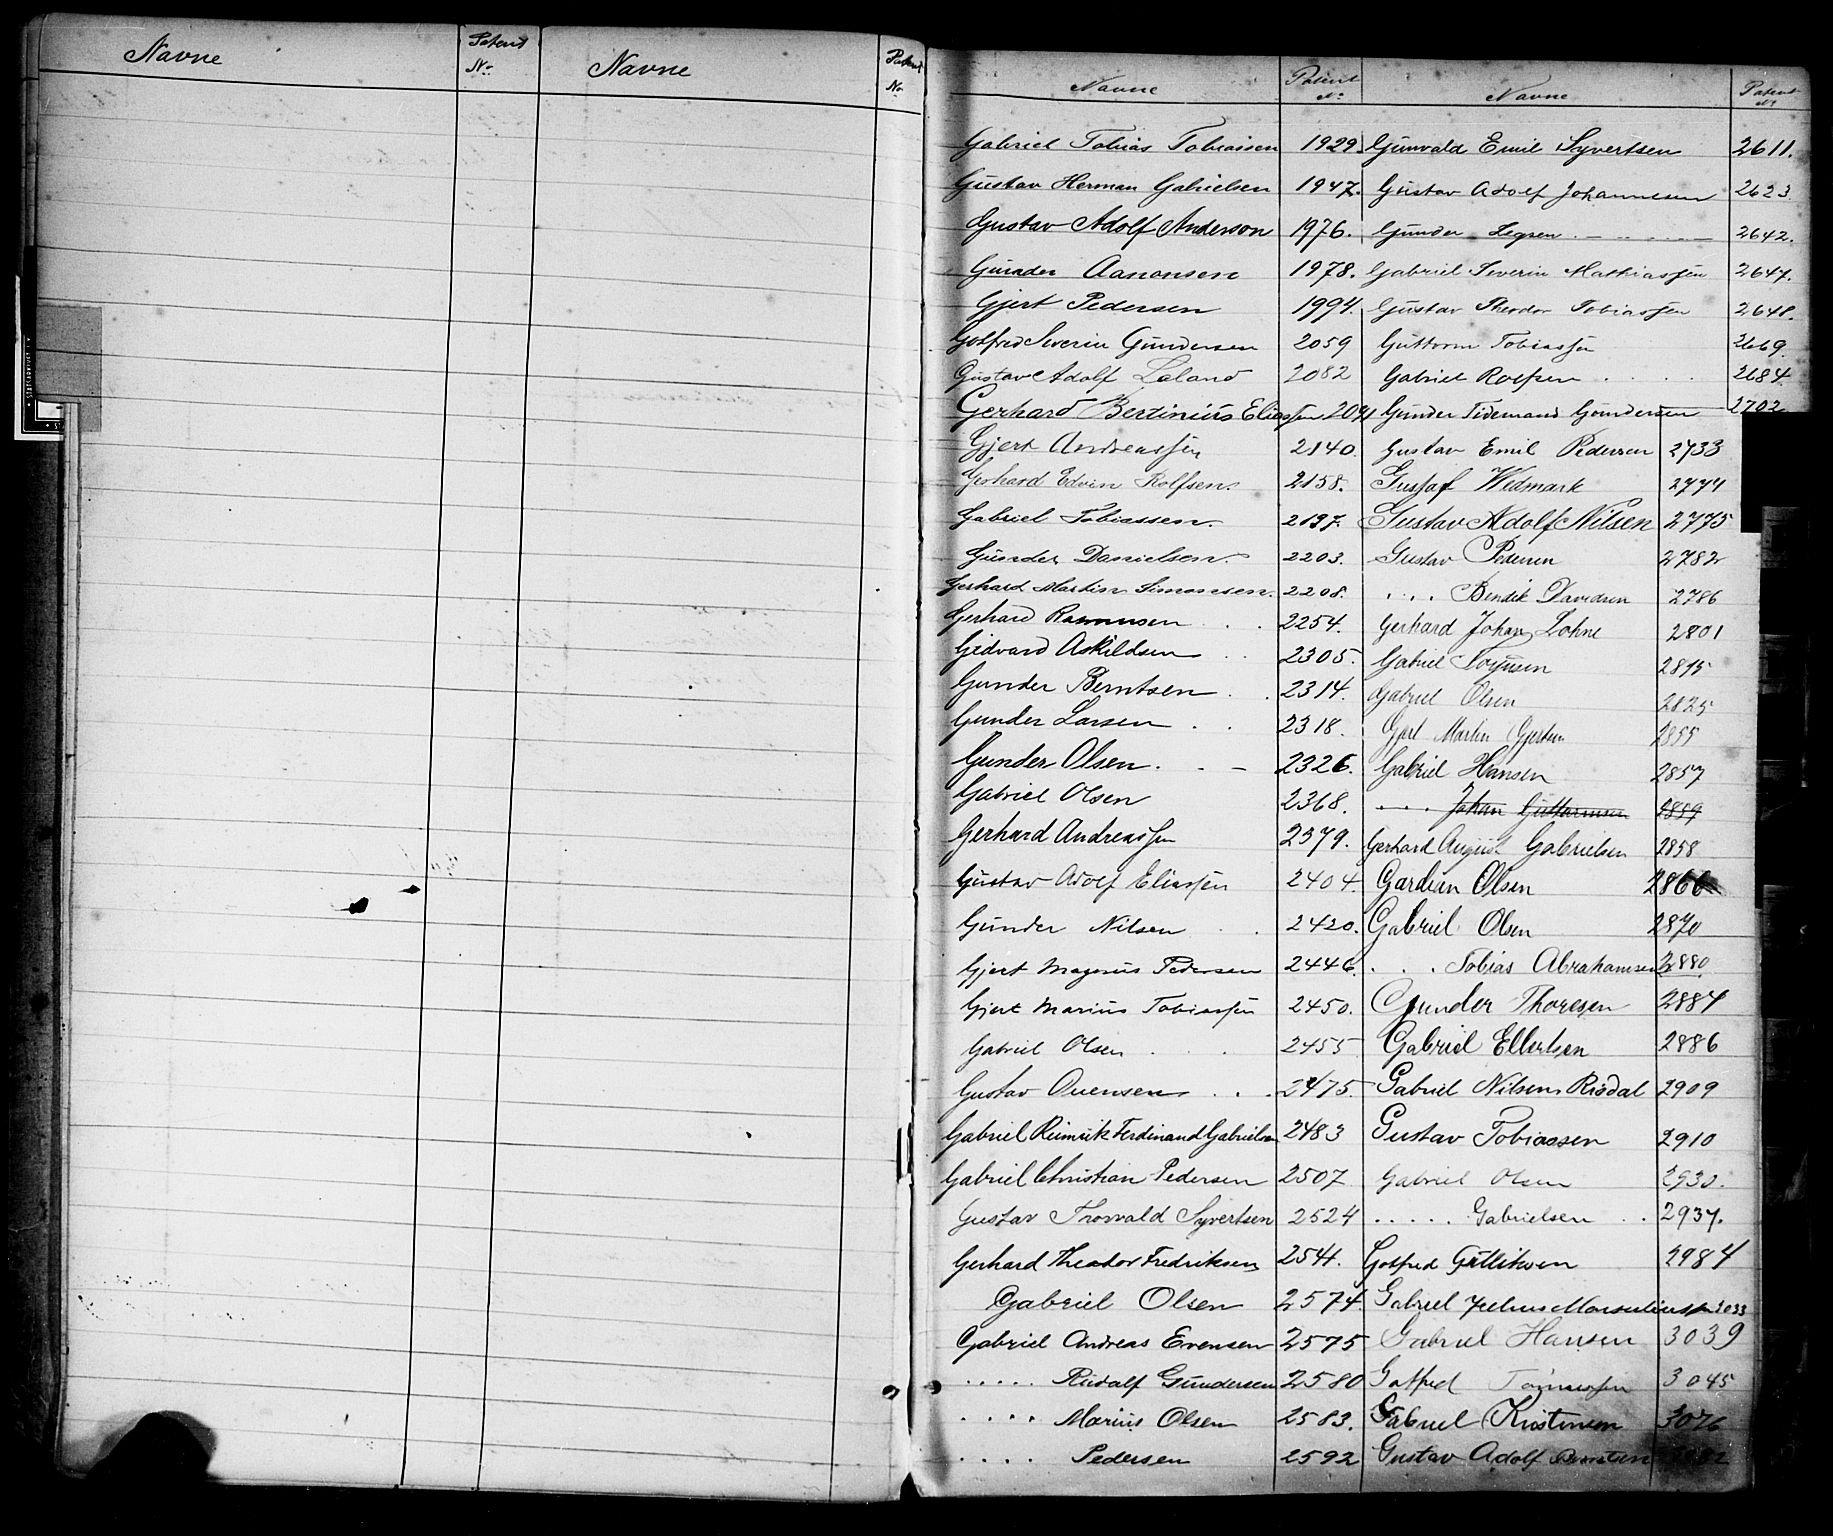 Navne Patent No Navne Patent No
Navne Patent No Navne Patent No
Gabriel Tobias Tobiassen 1929. Gunvald Emil Syvertsen 2611.
Gustav Herman Gabrielsen 1947. Gustav Adolf Johannesen 2623.
Gustav Adolf Anderson 1976. Gunder 2642.
Gunder Aanonsen 1978. Gabriel Severin Mathiassen 2647.
Gjert Pedersen 1994. Gustav Theodor Tobiassen 2648.
Gotfred Severin Gundersen 2059 Guttorm Tobiassen 2669.
Gustav Adolf Laland 2082 Gabriel Rolfsen . . . 2684.
Gerhard Bertinius Eliassen 2091 Gunder Tidemand Gundersen 2702
Gjert Andreassen 2140. Gustav Emil Pedersen 2733
Gerhard Edvin Rolfsen. 2158. Gustaf Wedmark 2774
Gabriel Tobiassen. 2197. Gustav Adolf Nilsen 2775
Gunder Danielsen. 2203. Gustav Pedersen 2782
Gerhard Martin Simonsen. 2208. . . . Bendik Davidsen 2786
Gerhard Rasmussen . . 2254. Gerhard Johan Lohne 2801
Gidvard Askildsen . . 2305. Gabriel 2815
Gunder Berntsen . . 2314. Gabriel Olsen 2825
Gunder Larsen . . 2318. Gjert Martin Gjertsen 2855
Gunder Olsen. . - 2326. Gabriel Hansen 2857
Gabriel Olsen 2368. . . . . Johan Guttormsen 2859
Gerhard Andreassen 2379. Gerhard August Gabrielsen 2858
Gustav Adolf Eliassen 2404. Gardian Olsen 2866
Gunder Nilsen . . 2420. Gabriel Olsen 2870
Gjert Magnus Pedersen 2446. . . . Tobias Abrahamsen 2880
Gjert Marius Tobiassen 2450. Gunder Thoresen 2884
Gabriel Olsen . . . 2455 Gabriel Ellertsen 2886
Gustav Ouensen . . . 2475. Gabriel Nilsen Risdal 2909
Gabriel Reinrik Ferdinand Gabrielsen 2483 Gustav Tobiassen 2910
Gabriel Christian Pedersen 2507 Gabriel Olsen 2930.
Gustav Thorvald Syvertsen 2524 . . . . . Gabrielsen . . 2937.
Gerhard Theodor Fredriksen 2541. Gotfred Gulliksen 2984
Gabriel Olsen 2574. Gabriel Julius 3033
Gabriel Andreas Evensen 2575 Gabriel Hansen 3039
. . . . . Rudolf Gundersen 2580 Gotfred 3045
. . . . Marius Olsen 2583. Gabriel Kristensen 3076
. . . . Pedersen 2592 Gustav Adolf Berntsen